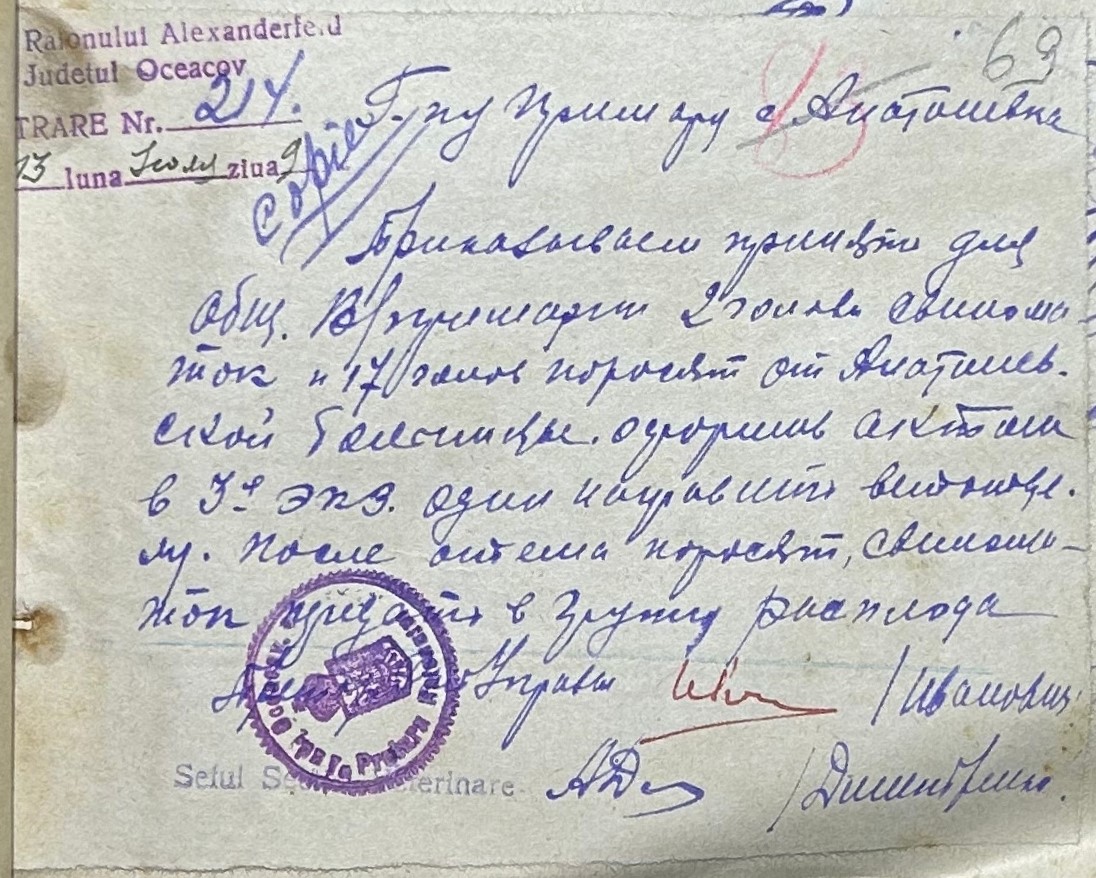 69
Raionului Alexanderfeld
Judetul Oceacov
TRARE Nr. 214.
13 luna Июля ziua 9
Copie
Г-ну Примару с Анатолиевка
Приказываем принять для
общ. В/примарии 2 головы свинома-
ток и 17 голов поросят от Анатолиев-
ской больницы. оформив актом
в 3х экз. один направить ветотде-
лу. После отъема поросят, свинома-
ток придать в группу расплода
Управы / Иванович
Seful Veterinare / Дмитренко.